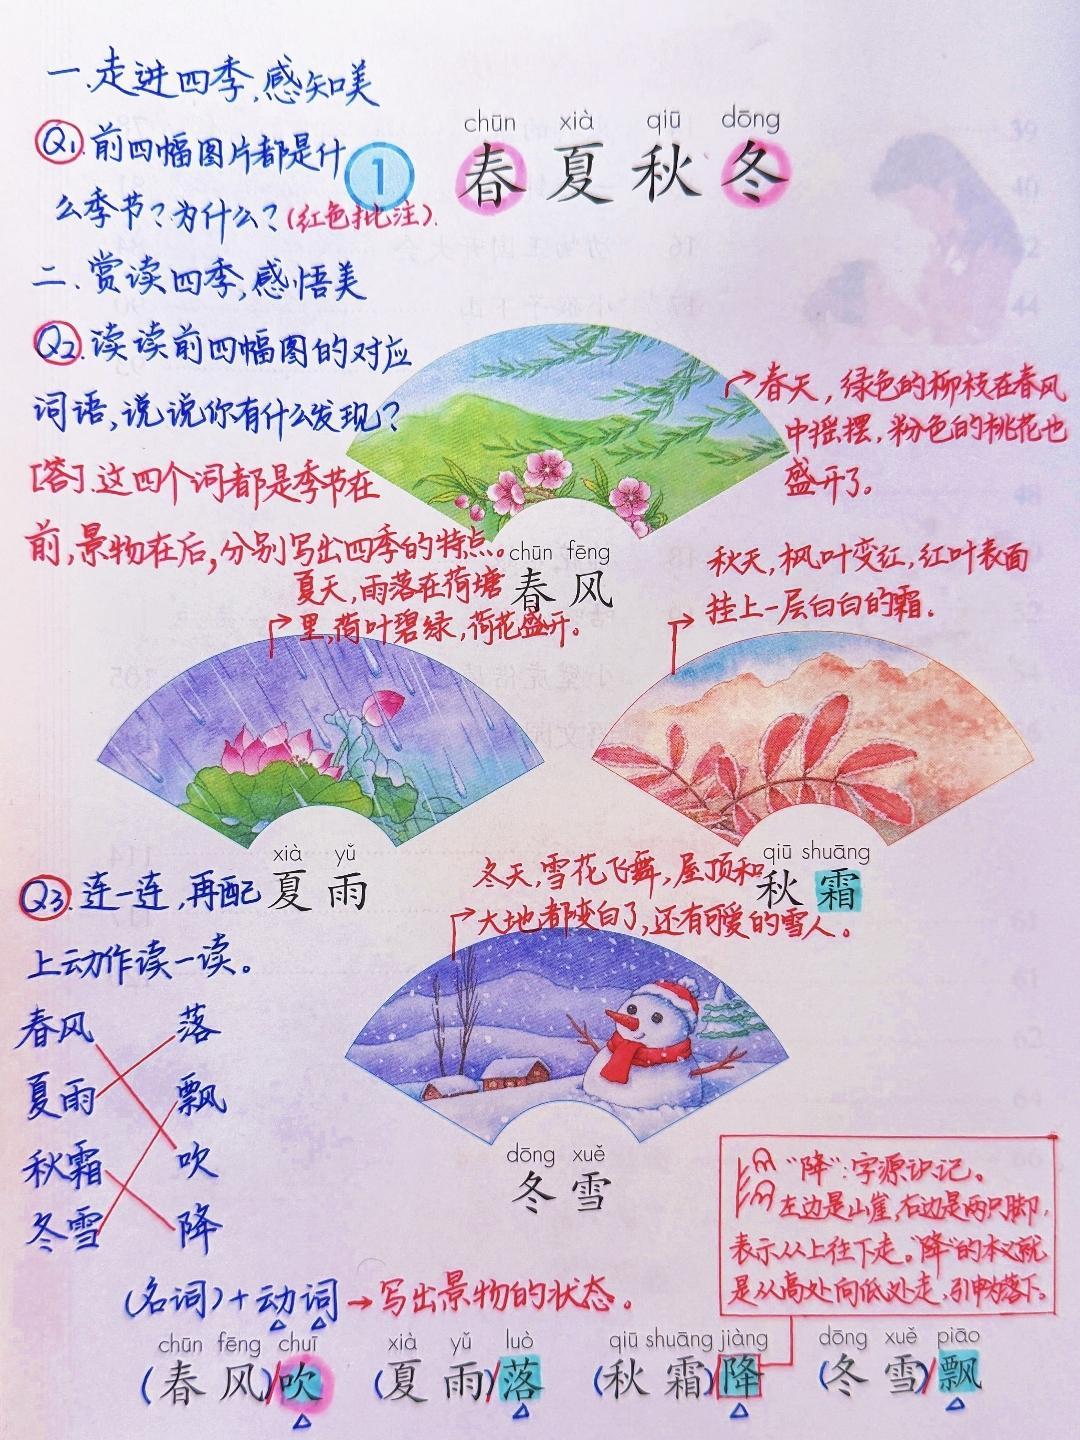 一.走进四季,感知美
Q1.前四幅图片都是什
么季节?为什么?(红色批注).
1
chūn xià qiū dōng
春夏秋冬
二.赏读四季,感悟美
Q2.读读前四幅图的对应
词语,说说你有什么发现?
[答].这四个词都是季节在
前,景物在后,分别写出四季的特点。
春天,绿色的柳枝在春风
中摇摆,粉色的桃花也
盛开了。
chūn fēng
春风
夏天,雨落在荷塘
里,荷叶碧绿,荷花盛开。
秋天,枫叶变红,红叶表面
挂上一层白白的霜.
xià yǔ
夏雨
qiū shuāng
秋霜
冬天,雪花飞舞,屋顶和
大地都变白了,还有可爱的雪人。
Q3.连一连,再配
上动作读一读。
春风 落
夏雨 飘
秋霜 吹
冬雪 降
dōng xuě
冬雪
"降":字源识记。
左边是山崖,右边是两只脚,
表示从上往下走。"降"的本义就
是从高处向低处走,引申为落下。
(名词)+动词→写出景物的状态。
chūn fēng chuī xià yǔ luò qiū shuāng jiàng dōng xuě piāo
(春风)/吹 (夏雨)/落 (秋霜)/降 (冬雪)/飘